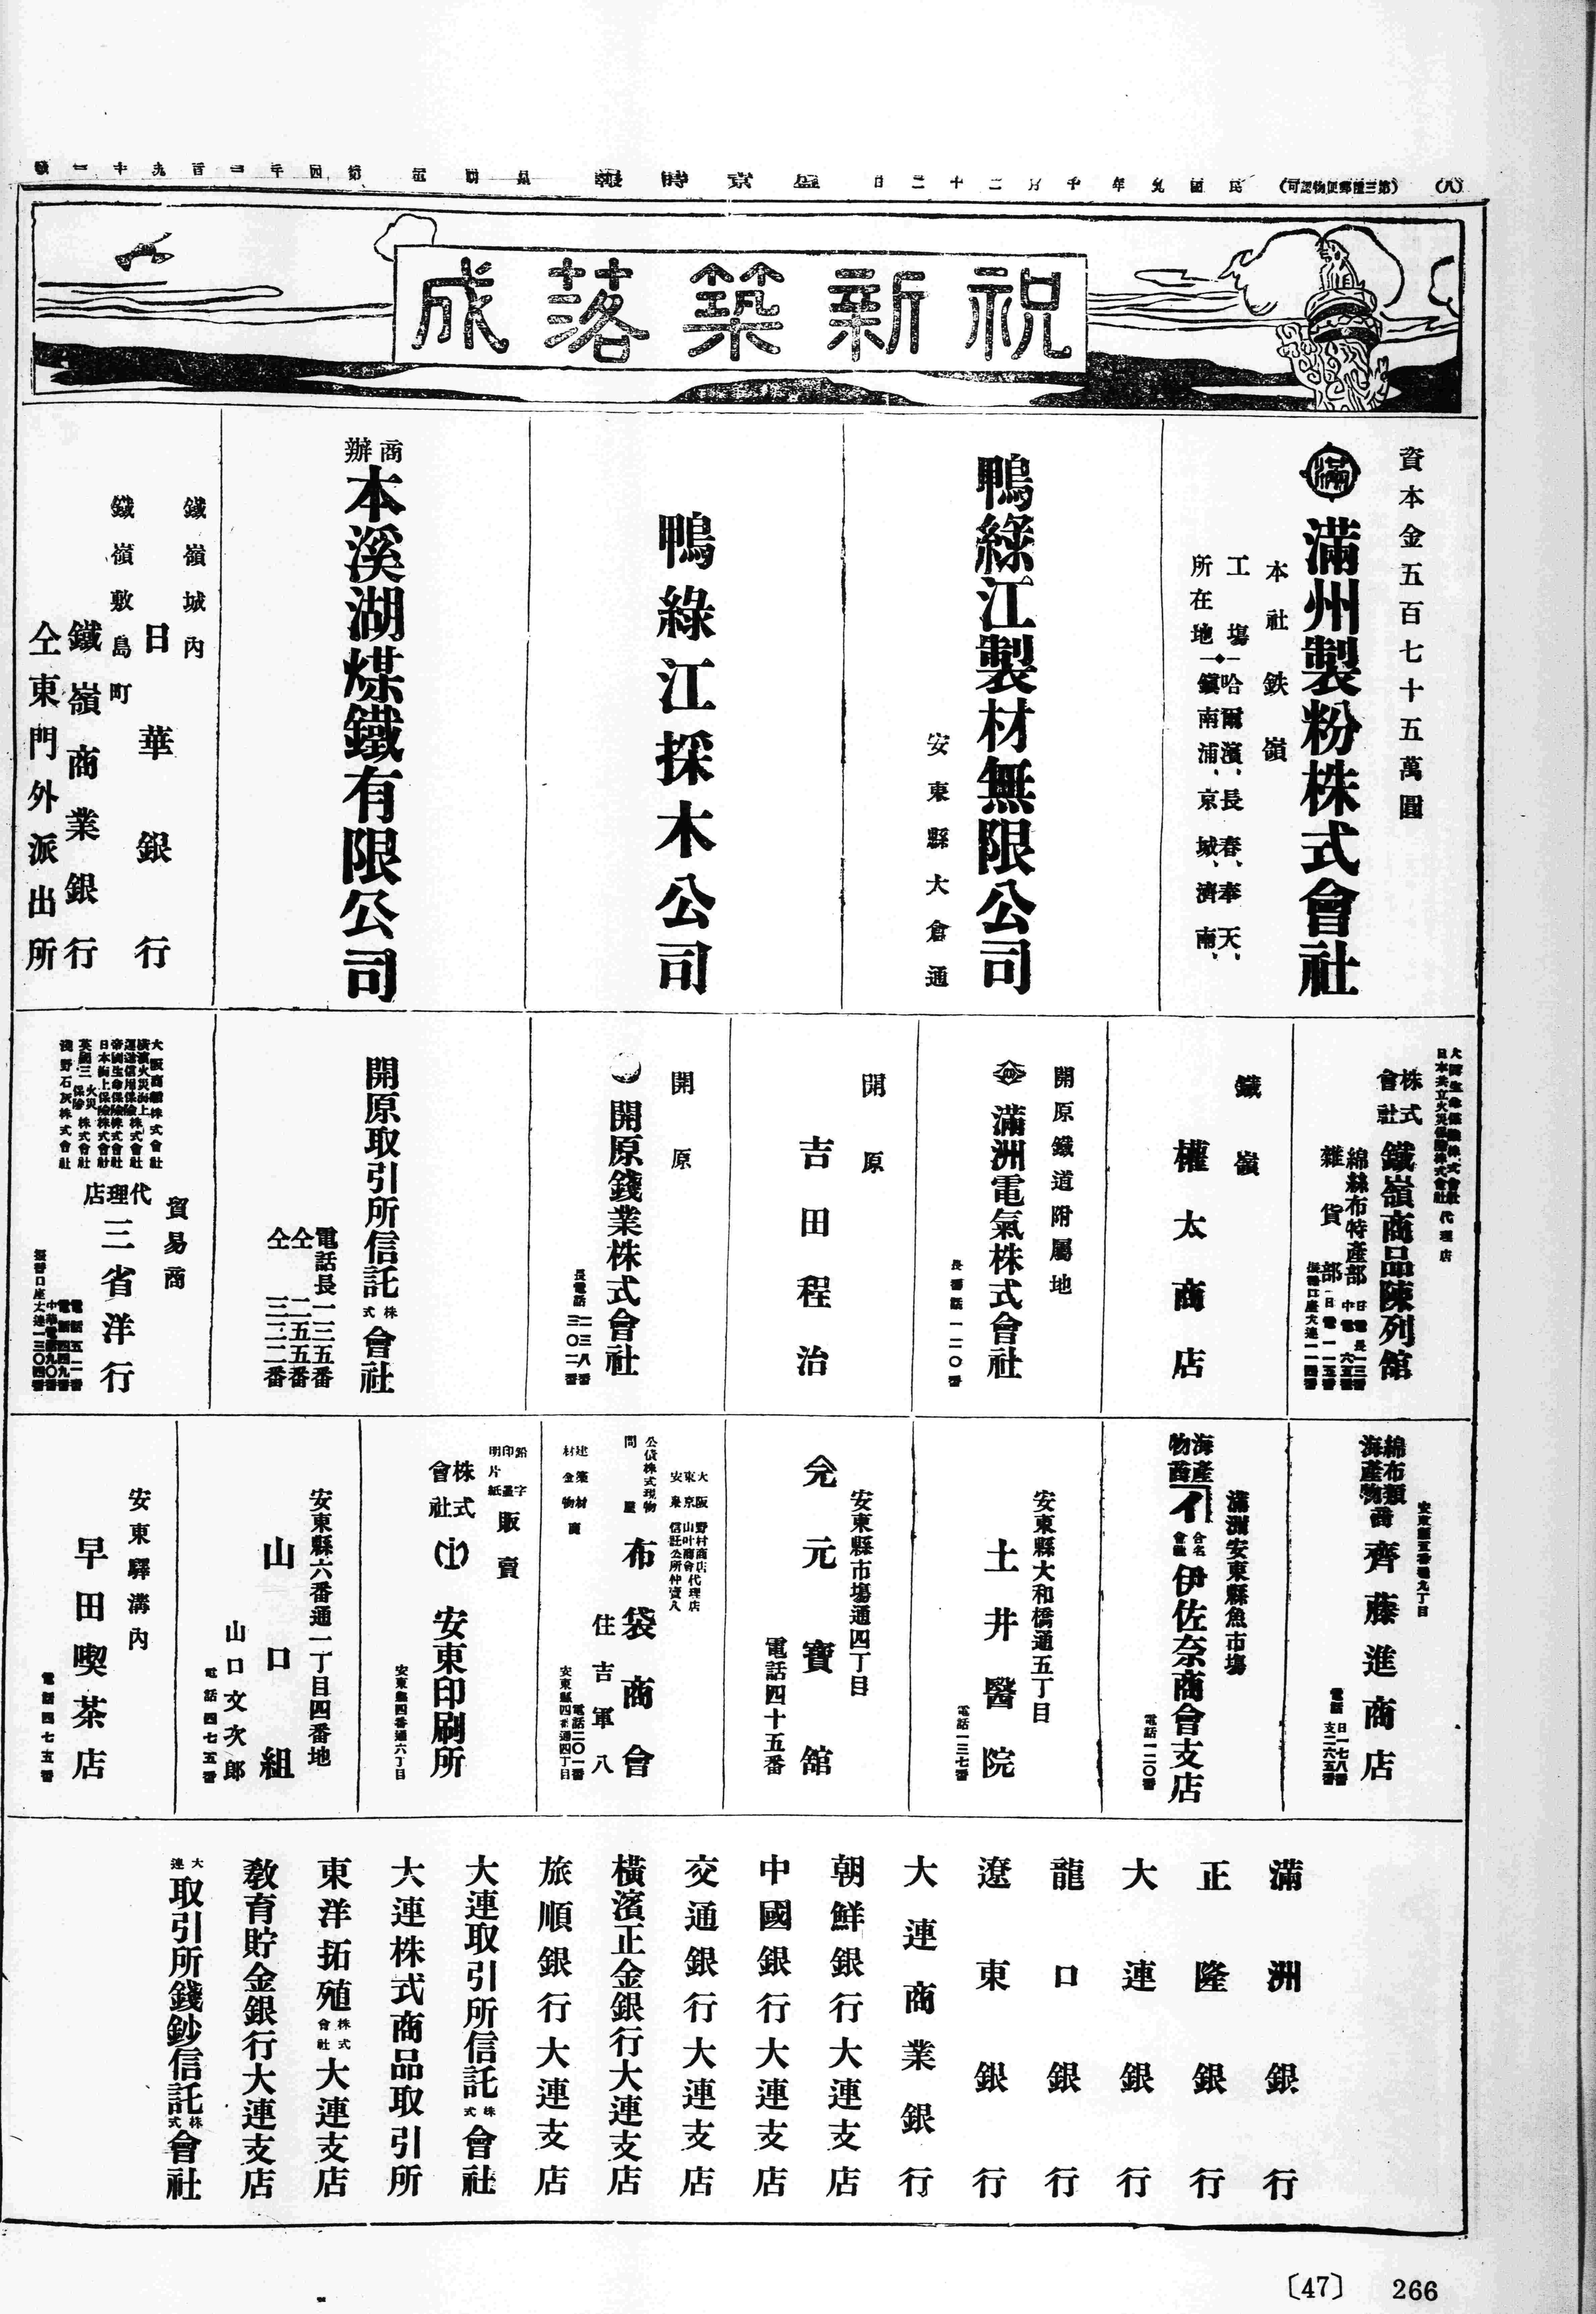 (八)
(第三種郵便物認可)
盛京時報
祝新築落成
資本金五百七十五萬圓
滿
滿州製粉株式會社
本社鉄嶺
工場
所在地
哈爾濱、長春、奉天、
鎭南浦、京城、濟南、
鴨綠江製材無限公司
安東縣大倉通
鴨綠江採木公司
商辦
本溪湖煤鐵有限公司
鐵嶺城內
日華銀行
鐵嶺敷島町
鐵嶺商業銀行
仝東門外派出所
代理店
株式會社
鐵嶺商品陳列舘
綿絲布特產部
雜貨部
鐵嶺
權太商店
開原鐵道附屬地
滿洲電氣株式會社
長電話一二〇番
開原
吉田程治
開原
開原錢業株式會社
開原取引所信託株式會社
電話長一三五番
仝二五五番
仝三二二番
大阪商船株式會社
橫濱火災海上株式會社
運送信用保險株式會社
帝國生命保險株式會社
日本海上保險株式會社
淺野石灰株式會社
代理店
貿易商
三省洋行
綿布類
海產物商
齊藤進商店
滿洲安東縣魚市場
海產物商
合名會社
伊佐奈商會支店
電話一二〇番
安東縣大和橋通五丁目
土井醫院
電話一三七番
安東縣市場通四丁目
兊元寶舘
電話四十五番
大阪野村商店
東京山叶商會代理店
安東信託公所仲賣人
公債株式現物
問屋
布袋商會
住吉軍八
建築材料
電話二〇一番
安東縣四番通四丁目
販賣
株式會社
安東印刷所
安東縣四番通六丁目
安東縣六番通一丁目四番地
山口組
山口文次郎
電話四七五番
安東驛溝內
早田喫茶店
電話四七五番
滿洲銀行
正隆銀行
大連銀行
龍口銀行
遼東銀行
大連商業銀行
朝鮮銀行大連支店
中國銀行大連支店
交通銀行大連支店
橫濱正金銀行大連支店
旅順銀行大連支店
大連取引所信託株式會社
大連株式商品取引所
東洋拓殖株式會社大連支店
敎育貯金銀行大連支店
大連取引所錢鈔信託株式會社
〔47〕 266